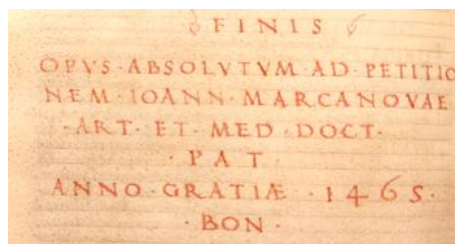 FINIS
OPVS·ABSOLVTVM·AD·PETITIO
NEM·IOANN·MARCANOVAE
·ART·ET·MED·DOCT·
·PAT·
ANNO·GRATIÆ·1465·
·BON·